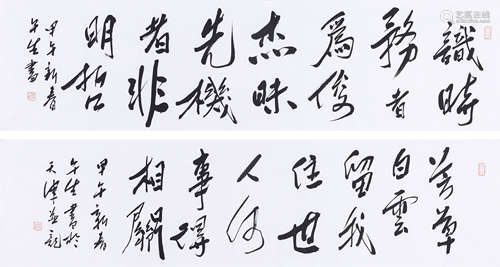 識時
務者
爲俊
杰昧
先機
者非
明哲
甲午新春
午生書
芳草
白雲
留我
住世
人何
事得
相關
甲午新春
午生書於
天津